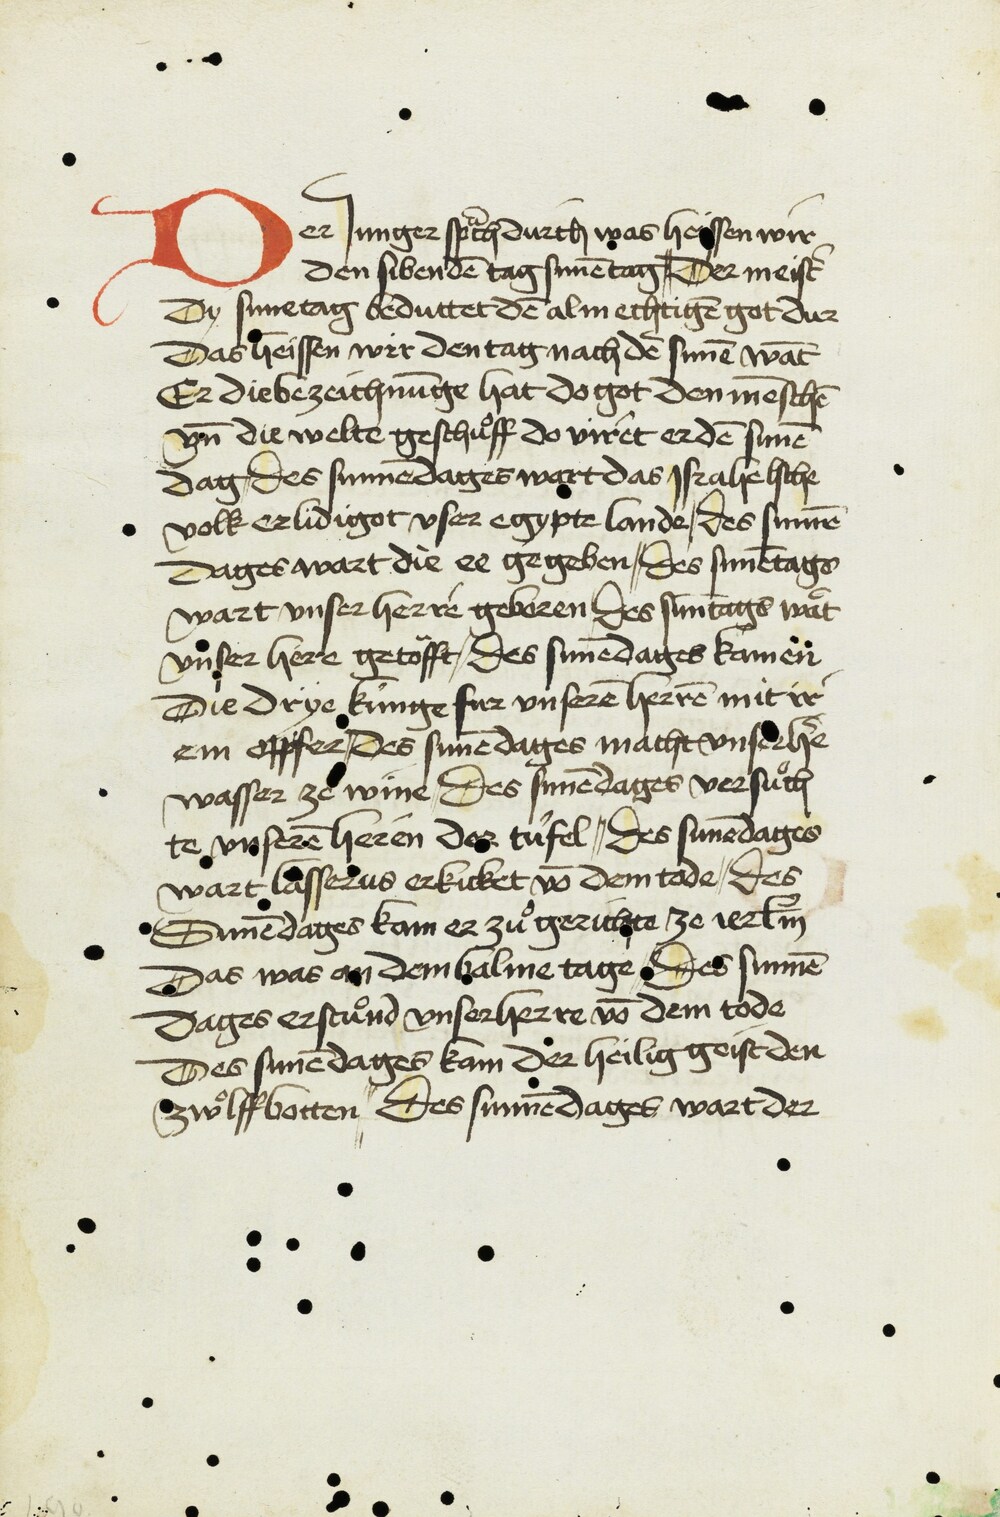 Der Junger sprach durich was heissen wir
den sibendē tag sunnētag // Der meistˀ
Dy sunnetag beduttet dē almechtigē got dur
Das heissen wir den tag nach dē sunnē wāt
Er die bezeichnūge hat do got den mēschē
vn̄ die welte geschůff do viret er dē sunnē
dag // des sunnēdages wart das Israhelsche
volk erlidigot vser egypte lande // des sunnē
dages wart die ee gegeben // des sunnētags
wart vnser herre geboren des sūntags wāt
vnser here getöfft // des sunnēdages kamen
Die drye kunige fur vnserē herrē mit ir
em opffer // Des sunnēdages macht vnser hˀe
wasser ze wine // Des sunnēdages versůch
te vnserē heren der tüfel // des sunnēdages
wart lasserus erkicket vō dem tode // des
Sunnēdages kam er zů gerichte ze ierlˀm
Das was an dem balme tage // Des sunnē
dages erstůnd vnser herre vō dem tode
Des sunnēdages kam der heilig geist den
zwölff botten // Des sunnēdages wart der